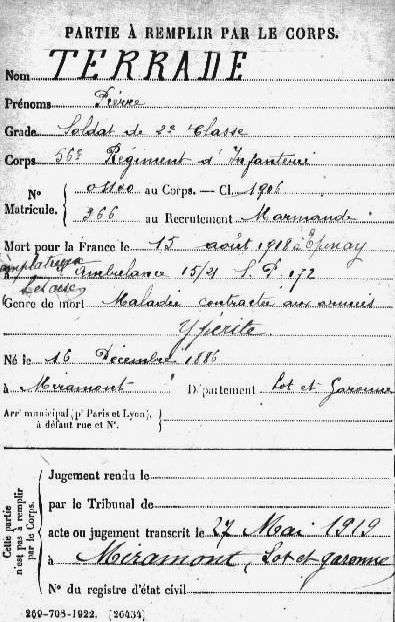 PARTIE À REMPLIR PAR LE CORPS.
Nom TERRADE
Prénoms Pierre
Grade Soldat de 2e Classe
Corps 56e Régiment d'Infanterie
No Matricule. 01100 au Corps. — Cl. 1906
366 au Recrutement Marmande
Mort pour la France le 15 août 1918 à Epinay
à Ambulance 15/21 S.P. 172
Genre de mort Maladie contractée aux armées
Ypérite
Né le 16 Décembre 1886
à Miramont Département Lot et Garonne
Arrt municipal (pr Paris et Lyon),
à défaut rue et No.
Cette partie n'est pas à remplir par le Corps.
Jugement rendu le
par le Tribunal de
acte ou jugement transcrit le 27 Mai 1919
à Miramont (Lot et garonne)
No du registre d'état civil
259-708-1922. (26434)